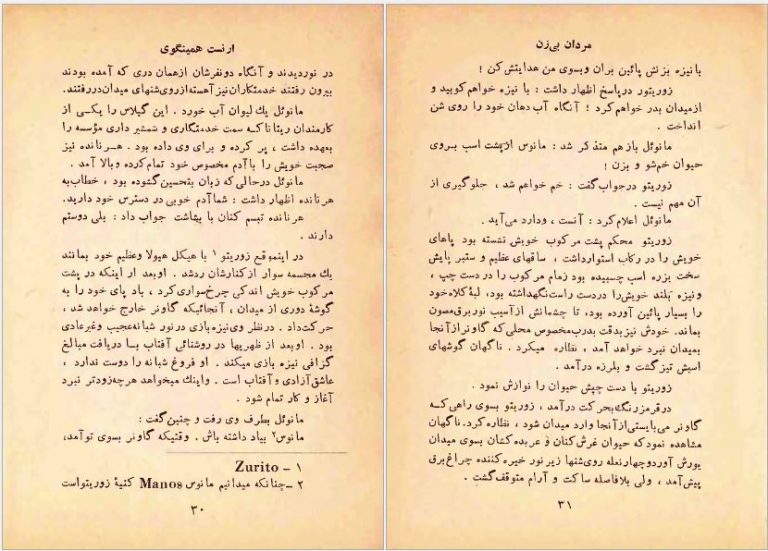 ارنست همینگوی
در نوردیدند و آنگاه دو نفرشان از همان دری که آمده بودند
بیرون رفتند خدمتکاران نیز آهسته از روی شنهای میدان دررفتند.
مانوئل یك لیوان آب خورد . این گیلاس را یکی از
کارمندان ریتاناکه سمت خدمتگاری و شمشیر داری مؤسسه را
بعهده داشت ، پر کرده و برای وی داده بود . هرناندە نیز
صحبت خویش را باآدم مخصوص خود تمام کرده و بالا آمد .
مانوئل درحالی که زبان بتحسین گشوده بود ، خطاب به
هرنانده اظهار داشت : شماآدم خوبی در دسترس خود دارید.
هرنانده تبسم کنان با بشاشت جواب داد : بلی دوستم
دارند .
در اینموقع زوریتو ۱ با هیکل هیولا وعظیم خود بمانند
یك مجسمه سوار از کنارشان ردشد . اوبعد از اینکه در پشت
مرکوب خویش اندکی چرخ سواری کرد ، باد پای خود را به
گوشهٔ دوری از میدان ، آنجائیکه گاونر خارج خواهد شد ،
حرکت داد . در نظر وی نیزه بازی در نور شبانه عجیب وغیرعادی
بود . اوبعد از ظهریها در روشنائی آفتاب بسا دریافت مبالغ
گزافی نیزه بازی میکند . او فروغ شبانه را دوست ندارد ،
عاشق آزادی و آفتاب است . واینك میخواهد هرچه زودتر نبرد
آغاز و کار تمام شود .
مانوئل بطرف وی رفت و چنین گفت :
مانوس۲ بیاد داشته باش . وقتیکه گاونر بسوی توآمد،
۱ – Zurito
۲ –چنانکه میدانیم مانوس Manos کنیهٔ زوریتواست
۳۰
مردان بی‌زن
با نیزه بزنش پائین بران وبسوی من هدایتش کن !
زوریتور درپاسخ اظهار داشت : با نیزه خواهم کوبید و
ازمیدان بدر خواهم کرد ! آنگاه آب دهان خود را روی شن
انداخت .
مانوئل بازهم متذکر شد : مانوس ازپشت اسب بروی
حیوان خم شو و بزن !
زوریتو درجواب گفت : خم خواهم شد ، جلوگیری از
آن مهم نیست .
مانوئل اعلام کرد : آنست ، ودارد می‌آید .
زوریتو محکم پشت مرکوب خویش نشسته بود پاهای
خویش را در رکاب استوارداشت ، ساقهای عظیم و ستبر پایش
سخت بزره اسب چسبیده بود زمام مرکوب را در دست چپ ،
ونیزه بلند خویش‌را دردست راست نگهداشته بود، لبهٔ کلاه خود
را بسیار پائین آورده بود، تا چشمانش ازآسیب نوربرق مصون
بماند. خودش نیز بدقت بدرب مخصوص محلی که گاونر ازآنجا
بمیدان نبرد خواهد آمد ، نظاره میکرد . ناگهان گوشهای
اسبش تیز گشت و بلرزه در آمد .
زوریتو با دست چپش حیوان را نوازش نمود .
درقرمزرنگ بحرکت درآمد ، زوریتو بسوی راهی که
گاونر می‌بایستی ازآنجا وارد میدان شود ، نظاره کرد. ناگهان
مشاهده نمودکه حیوان غرش‌کنان و عربده کنان بسوی میدان
یورش آوردوچهارنعله روی‌شنها زیر نور خیره کننده چراغ برق
پیش آمد ، ولی بلافاصله ساکت و آرام متوقف گشت .
۳۱